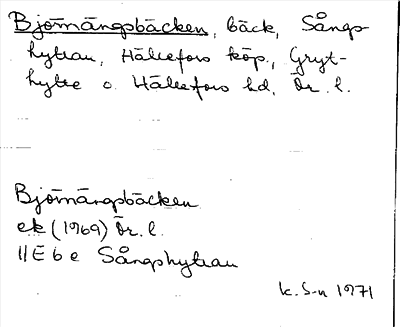 Björnängsbäcken, bäck, Sångs-
hyttan, Hällefors köp., Gryt-
hytte o. Hällefors hd, Ör. l.
Björnängsbäcken
ek (1969) Ör. l.
11E 6e Sångshyttan
K. S-n 1971